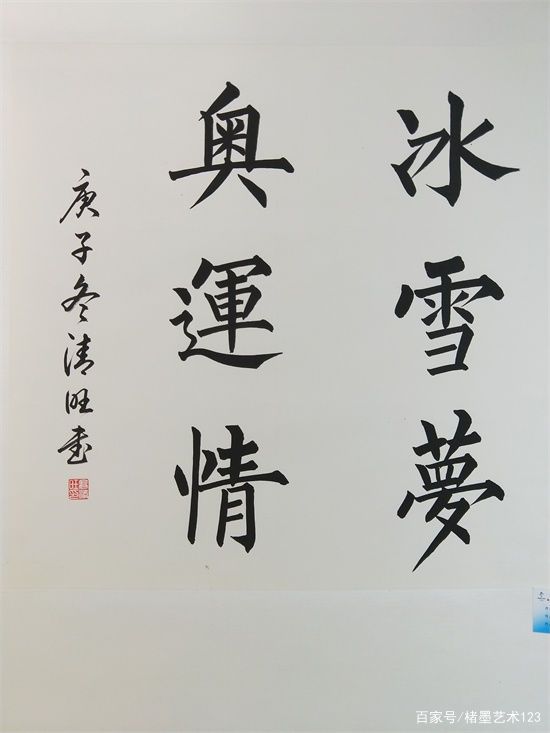 冰雪夢
奧運情
庚子冬清旺书
百家号/楮墨艺术123